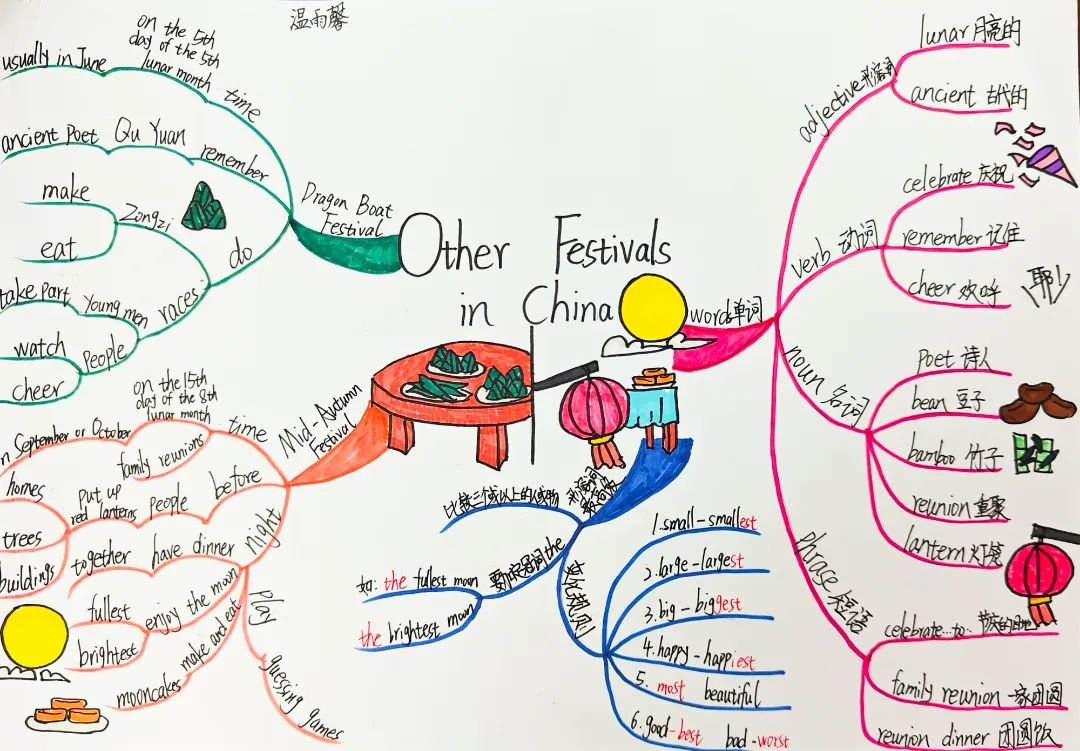 温雨馨
Other Festivals
in China
Dragon Boat
Festival
time
on the 5th
day of the 5th
lunar month
usually in June
remember
Qu Yuan
ancient Poet
do
Zongzi
make
eat
races
Young men
take part
People
watch
cheer
Mid-Autumn
Festival
time
on the 15th
day of the 8th
lunar month
n September or October
before
family reunions
people
put up
red lanterns
homes
trees
buildings
night
have dinner
together
enjoy the moon
fullest
brightest
make and eat
mooncakes
play
guessing games
比较三个或以上的人或物
要用定冠词the
如: the fullest moon
the brightest moon
变化规则
1.small-smallest
2.large-largest
3.big-biggest
4.happy-happiest
5. most beautiful
6.good-best bad-worst
words单词
adjective形容词
lunar 月亮的
ancient 古代的
verb 动词
celebrate 庆祝
remember 记住
cheer 欢呼
耶!
noun 名词
poet 诗人
bean 豆子
bamboo 竹子
reunion 重聚
lantern 灯笼
phrase-短语
celebrate...to..
family reunion 一家团圆
reunion dinner 团圆饭